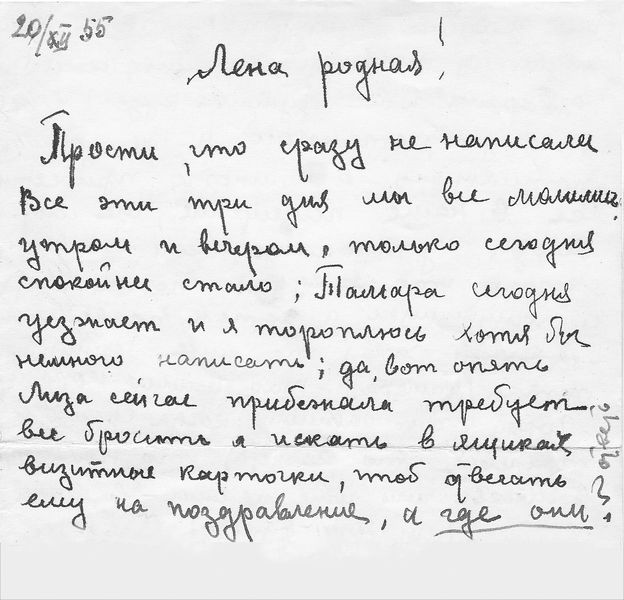 20/XII 55
Лена родная!
Прости, что сразу не написали
Все эти три дня мы все молились
утром и вечером, только сегодня
спокойнее стало; Тамара сегодня
уезжает и я тороплюсь хотя бы
немного написать; да, вот опять
Лиза сейчас прибежала требует
все бросить и искать в ящиках
визитные карточки, чтоб отвечать
ему на поздравление, а где они?